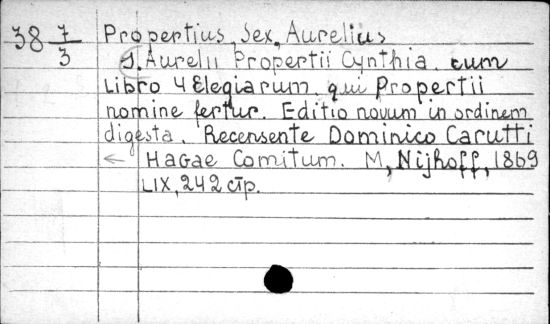 38 7/3 Propertius, Sex, Aurelius
S. Aurelii Propertii Cynthia. cum
Libro 4 Elegiarum. qui Propertii
nomine fertur. Editio novum in ordinem
digesta. Recensente Dominico Carutti
← Hagae Comitum. M, Nijhoff, 1869
LIX, 242 стр.